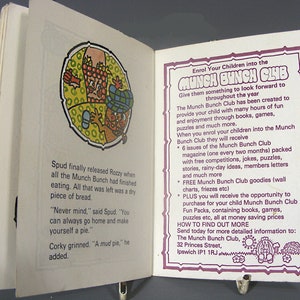 Spud finally released Rozzy when
all the Munch Bunch had finished
eating. All that was left was a dry
piece of bread.
"Never mind," said Spud. "You
can always go home and make
yourself a pie."
Corky grinned. "A mud pie," he
added.
Enrol Your Children into the
MUNCH BUNCH CLUB
Give them something to look forward to
throughout the year
The Munch Bunch Club has been created to
provide your child with many hours of fun
and enjoyment through books, games,
puzzles and much more.
When you enrol your children into the Munch
Bunch Club they will receive
* 6 issues of the Munch Bunch Club
magazine (one every two months) packed
with free competitions, jokes, puzzles,
stories, rainy-day ideas, members letters
and much more
* FREE Munch Bunch Club goodies (wall
charts, friezes etc)
* PLUS you will receive the opportunity to
purchase for your child Munch Bunch Club
Fun Packs, containing books, games,
puzzles etc, all at money saving prices
HOW TO FIND OUT MORE
Send today for more detailed information to:
The Munch Bunch Club,
32 Princes Street,
Ipswich IP1 1RJ